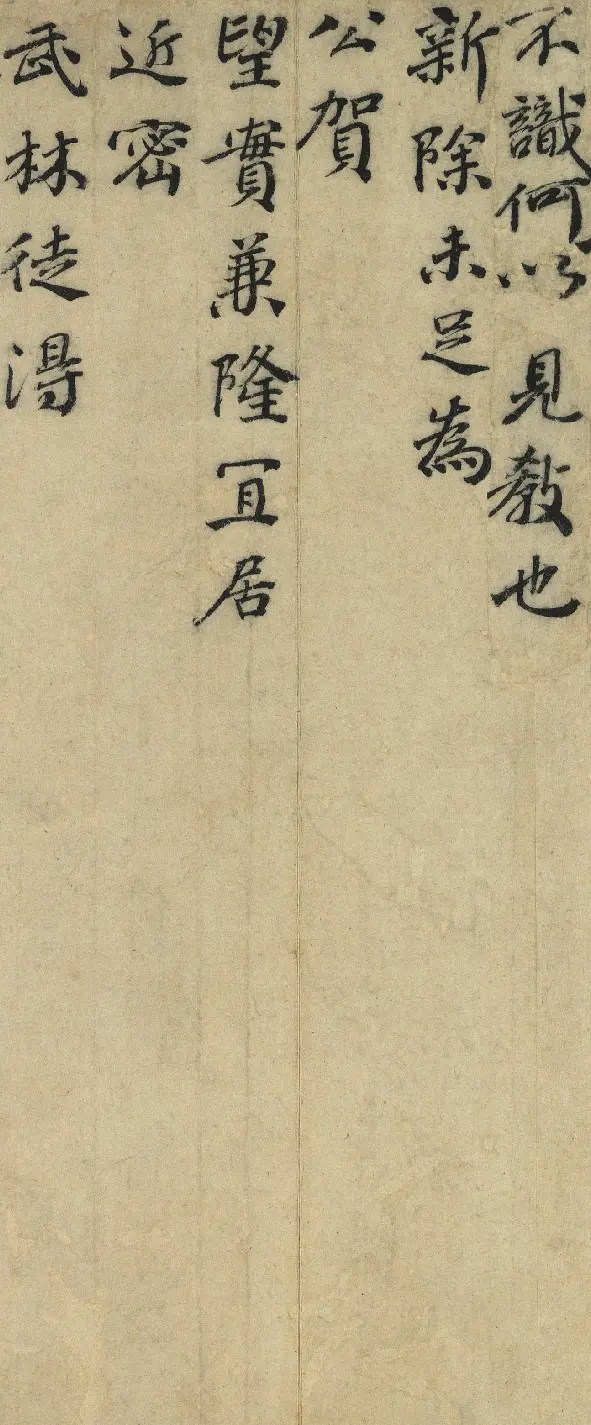 不識何以 見教也
新除未足為
公賀
望實兼隆宜居
近密
武林徒得